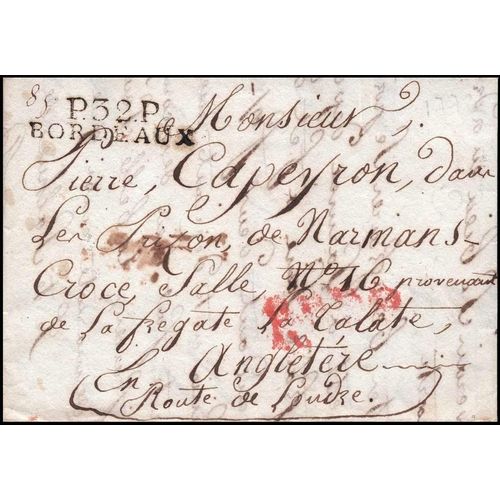 85
P32P
BORDEAUX
à Monsieur,
Pierre, Capeyron, dans
Les Prizon, de Narmans-
Croce, Salle, No 16 provenant
de La fregate la Talate,
Angletére
En
Route de Londre.